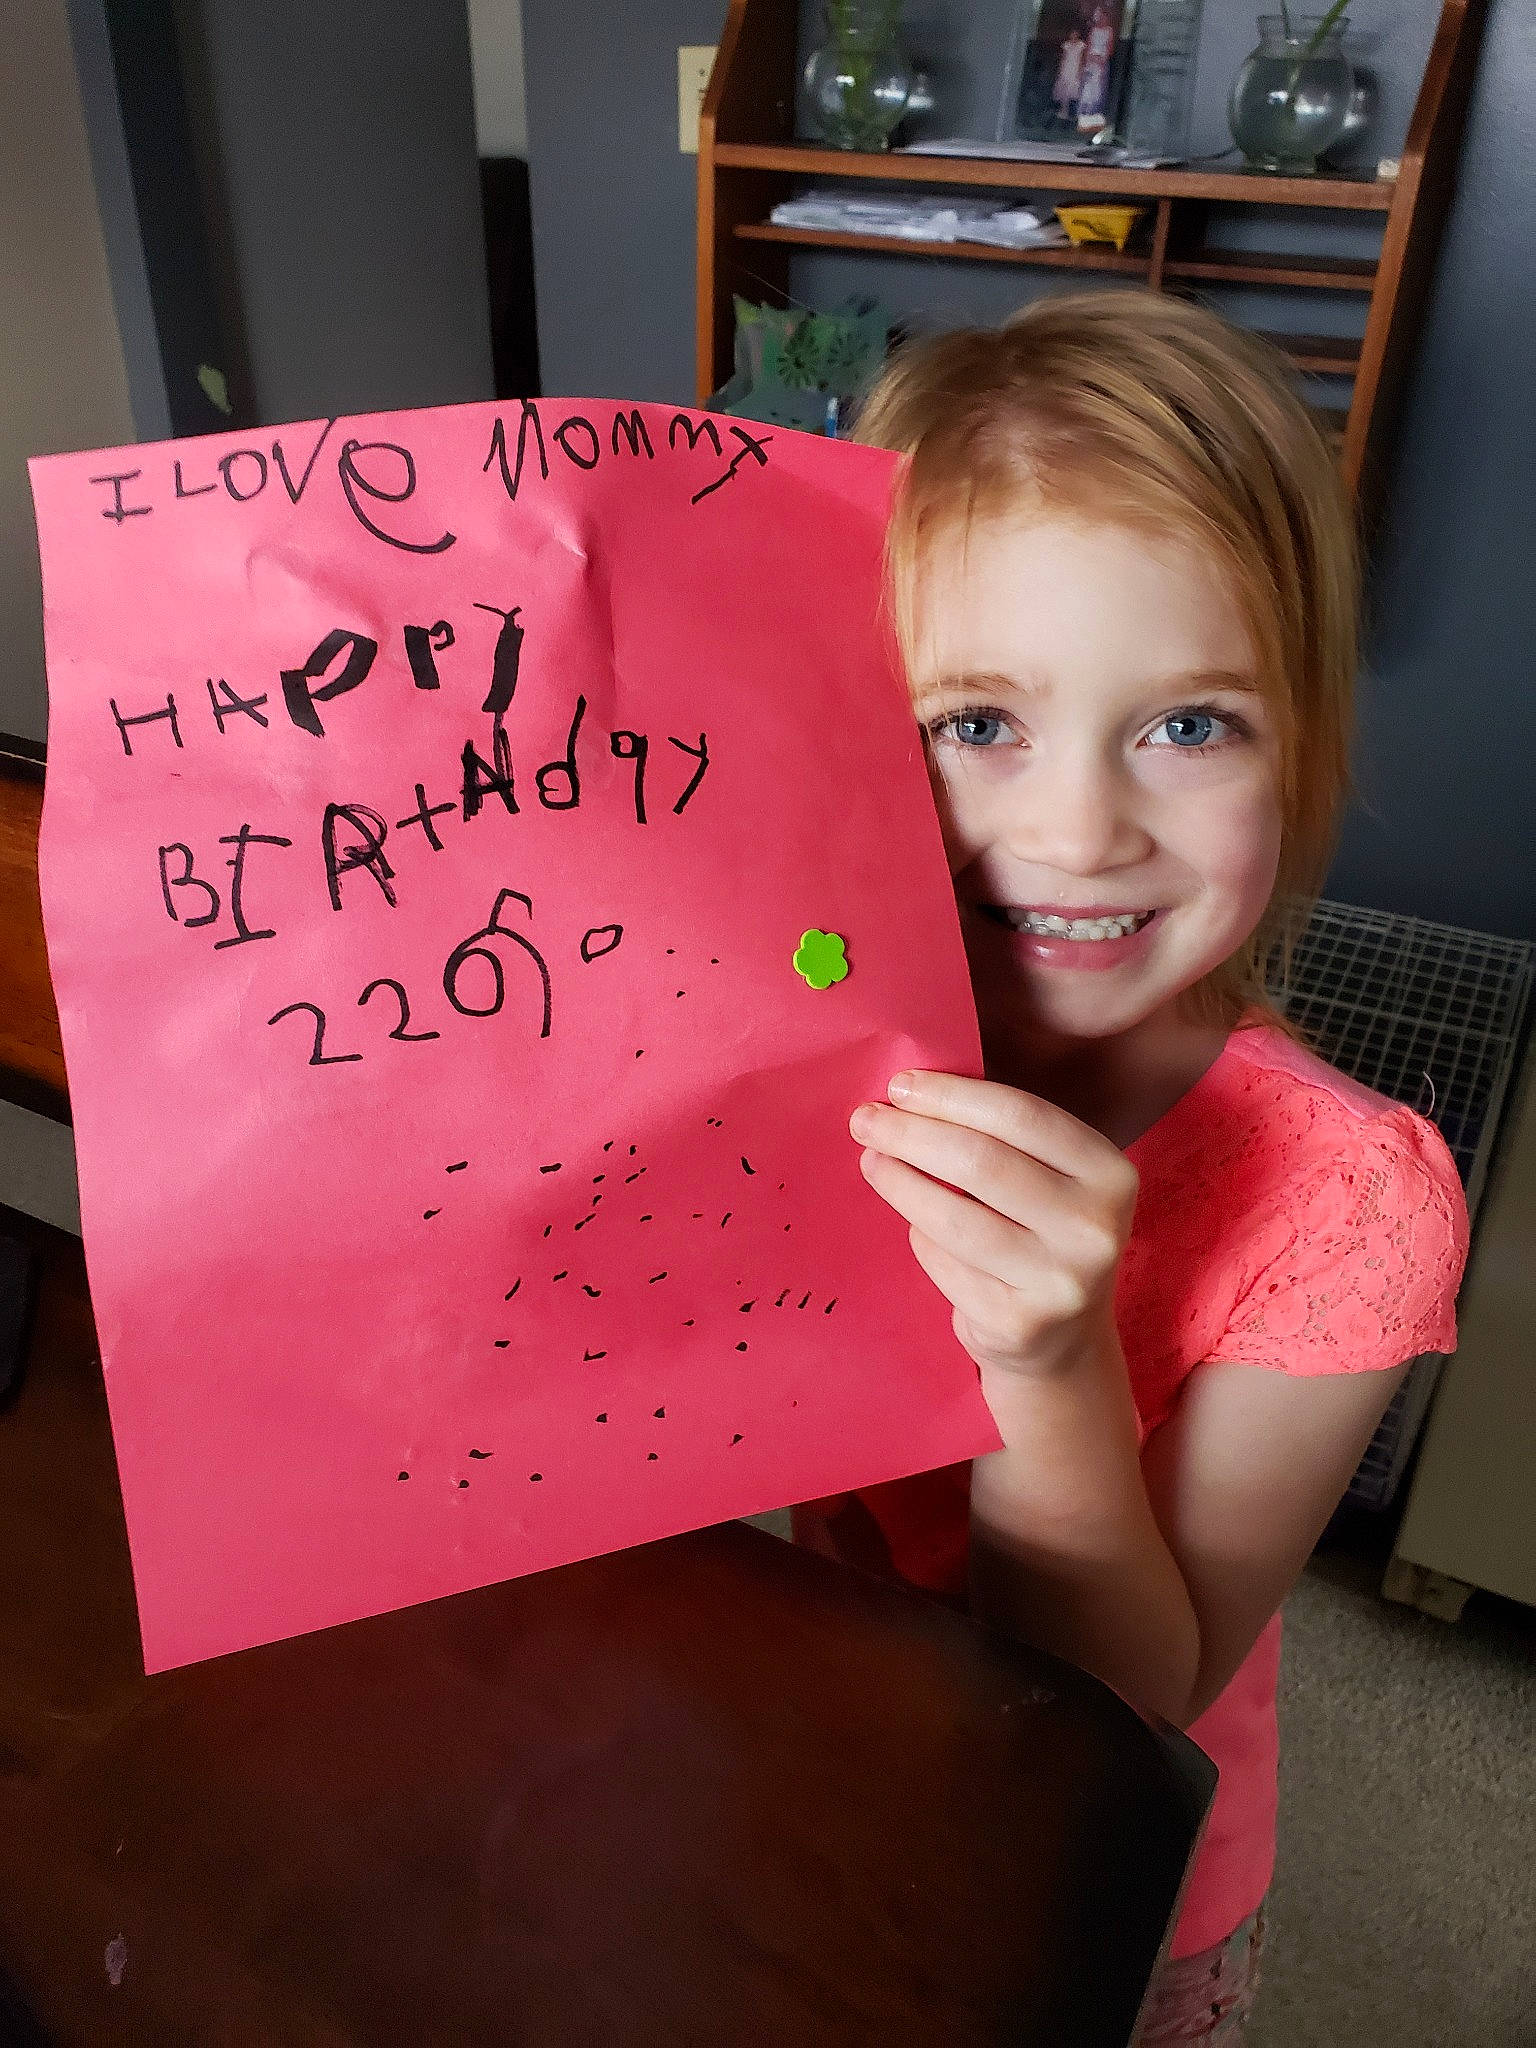 I LOVe MOMMY
HAPPY
BIRtHdqy